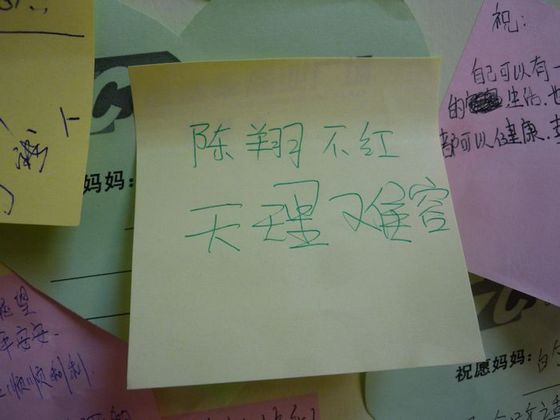 陈翔不红
天理难容
祝:
自己可以有一
的 生活.也
都可以健康.
妈妈:
愿望
平安安.
顺顺利利
祝愿妈妈: